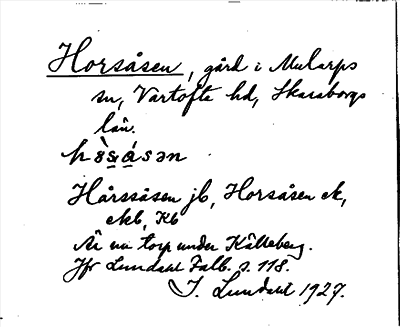 Horsåsen, gård i Mularps
sn, Vartofta hd, Skaraborgs
län.
Hårssåsen jb, Horsåsen ek,
ekb, Kb
Är nu torp under Kälteberg.
Jfr Lundahl Falb. s. 118.
I. Lundahl 1927.